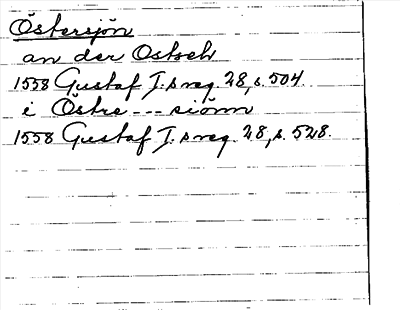 Östersjön
an der Ostseh
1558 Gustaf I:s reg. 28, s. 504.
i Östre --- siönn
1558 Gustaf I:s reg. 28, s. 528.